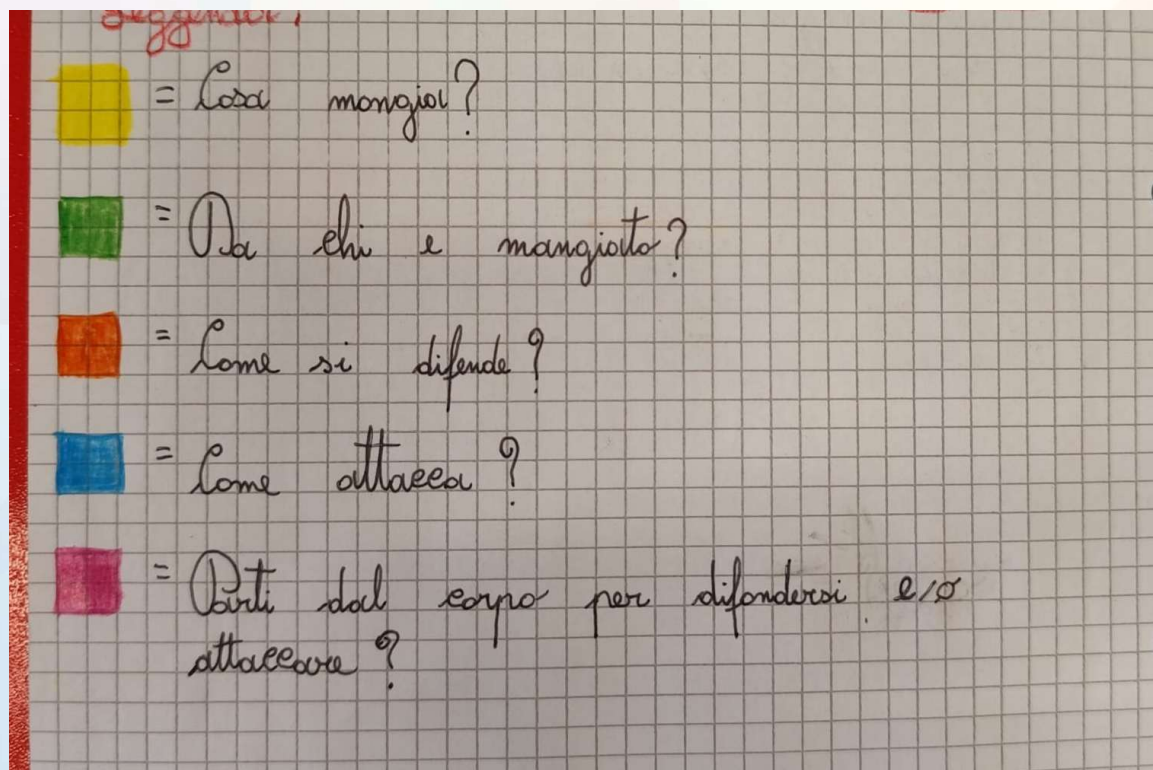 Leggenda:
= Cosa mangia?
= Da chi e mangiato?
= Come si difende?
= Come attacca?
= Parti dal corpo per difendersi e/o
attaccare?